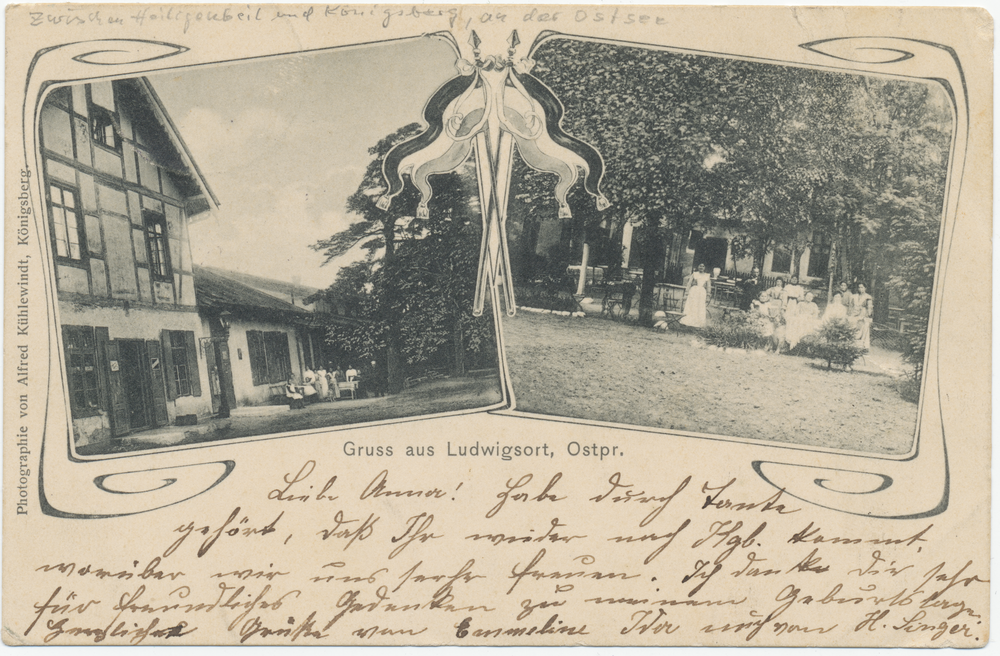 Zwischen Heiligenbeil und Königsberg, an der Ostsee
Photographie von Alfred Kühlewindt, Königsberg.
Gruss aus Ludwigsort, Ostpr.
Liebe Anna! Habe durch Tante
gehört, daß Ihr wieder nach Kgb. kommt,
worüber wir uns sehr freuen. Ich danke Dir sehr
für freundliches Gedenken zu meinem Geburtstage.
Herzliche Grüße von Emmeline Ida auch von H. Singer.